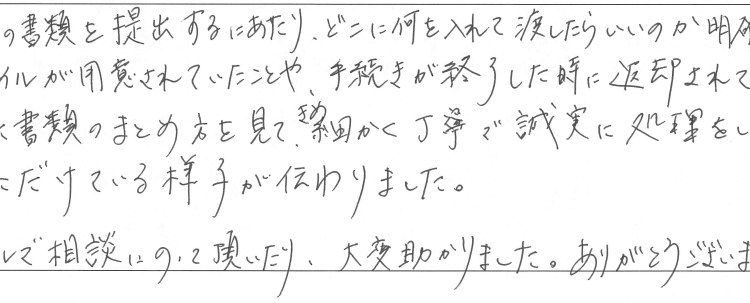 の書類を提出するにあたり、どこに何を入れて渡したらいいのか明確
イルが用意されていたことや、手続きが終了した時に返却されて
書類のまとめ方を見て、きめ細かく丁寧で誠実に処理をし
ただけている様子が伝わりました。
ルで相談にのって頂いたり、大変助かりました。ありがとうございま